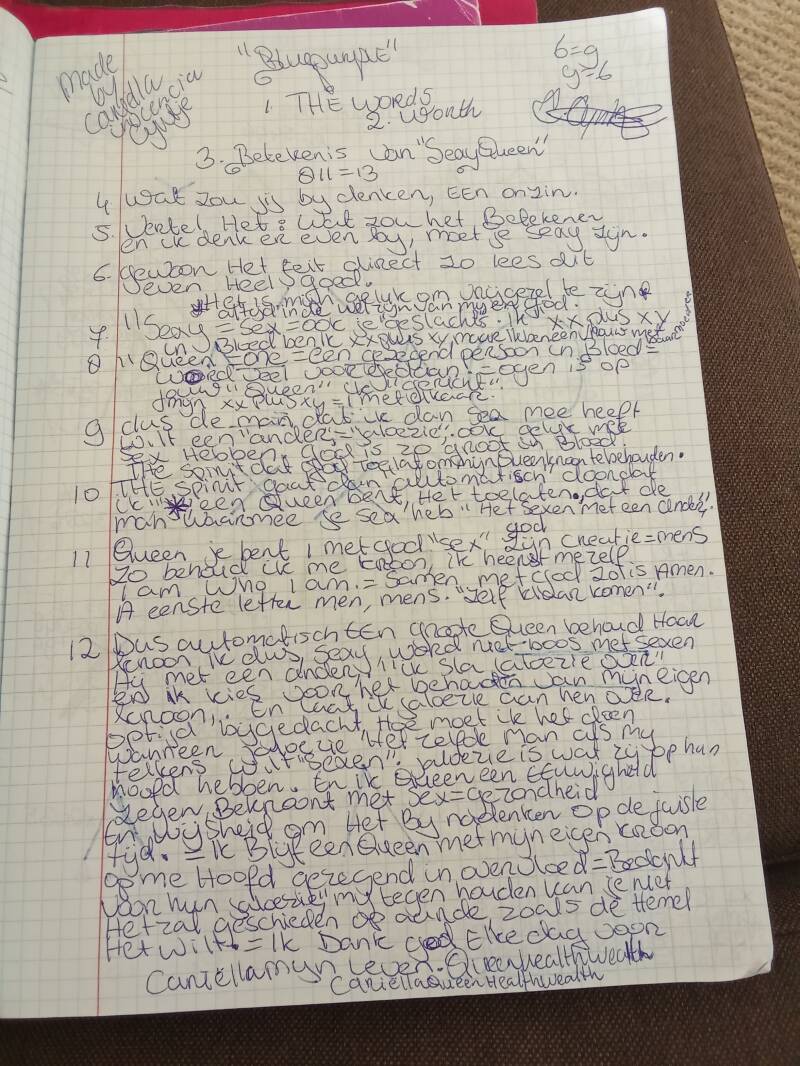 made
by
Caniella
inocencia
"Bluepurple"
6=g
g=6
1. THE WORDS
2. Worth
3. Betekenis van "SeayQueen"
811=13
4 Wat zou jij by denken, EEN onzin.
5. Vertel Het: Wat zou het Betekenen
en ik denk er even by, moet je Seay zijn.
6. Gewoon Het feit direct zo lees dit
even Heel goed.
*Het is mijn geluk om vrijgezel te zijn
altijd inde welzijn van my en god.
7 "Seay = Sex = ook je geslacht. ik xx plus xy
in Bloed ben ik xx plus xy maar ik ben een vrouw met
8 "Queen = one = een gezegend persoon in Bloed =
word veel voor = ogen is op
jouw "Queen" ik "gericht".
mijn xx plus xy = 1 met elkaar.
9 dus de man, dat ik dan sea mee heeft
wilt een "ander" = "jaloezie", ook gelyk mee
sex Hebben. God is zo groot in Bloed.
THE spirit dat god toelaat om mijn queen kroon te behouden.
10 THE spirit gaat dan automatisch doordat
ik "* een Queen bent, Het toelaten, dat de
man waarmee je sea heb "Het sexen met een ander".
11 Queen je bent 1 met god "sex" god zijn creatie = mens
Zo behoud ik me kroon, ik heerst me zelf
I am who I am. = Samen met God zo is Amen.
A eerste letter men, mens. "Zelf klaar komen".
12 Dus automatisch EEn groote Queen behoud Haar
kroon, ik dus, Seay word niet boos met sexen
Hij met een ander, ik sla "jaloezie over"
en ik kies voor het behouden van mijn eigen
kroon,. En laat ik jaloezie aan hen over.
optijd bijgedacht, Hoe moet ik het doen
wanneer jaloezie Het zelfde man als my
telkens wilt "sexen". jaloezie is wat zij op hun
hoofd hebben. En ik Queen een EEuwigheid
zegen, Bekroont met sex = gezondheid
En wijsheid om Het By nadenken op de juiste
tijd. = ik Blijf een Queen met mijn eigen kroon
op me Hoofd gezegend in overvloed = Bedankt
voor hun "jaloezie" my tegen houden kan je niet
Het zal geschieden op aarde zoals de Hemel
Het wilt. = Ik Dank god Elke dag voor
Caniëlla mijn leven. Queenhealthwealth
CaniëllaQueenHealthwealth